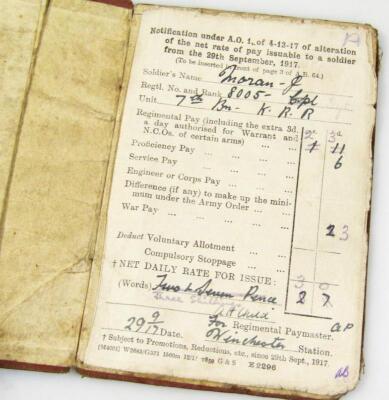 Notification under A.O. 1, of 4-13-17 of alteration
of the net rate of pay issuable to a soldier
from the 29th September, 1917.
(To be inserted in front of page 3 of A.B. 64.)
Soldier's Name Moran J
Regtl. No. and Rank 8005 - Cpl
Unit 7th Bn - K. R. R
Regimental Pay (including the extra 3d.
a day authorised for Warrant and
N.C.Os. of certain arms) 1 11
Proficiency Pay 6
Service Pay
Engineer or Corps Pay
Difference (if any) to make up the mini-
mum under the Army Order
War Pay 2 3
Deduct Voluntary Allotment
Compulsory Stoppage
† NET DAILY RATE FOR ISSUE: 3 0
(Words) Two & Seven Pence 2 7
Three
For Regimental Paymaster.
29 9/17 Date. Winchester Station.
† Subject to Promotions, Reductions, etc., since 29th Sept., 1917.
E 2296